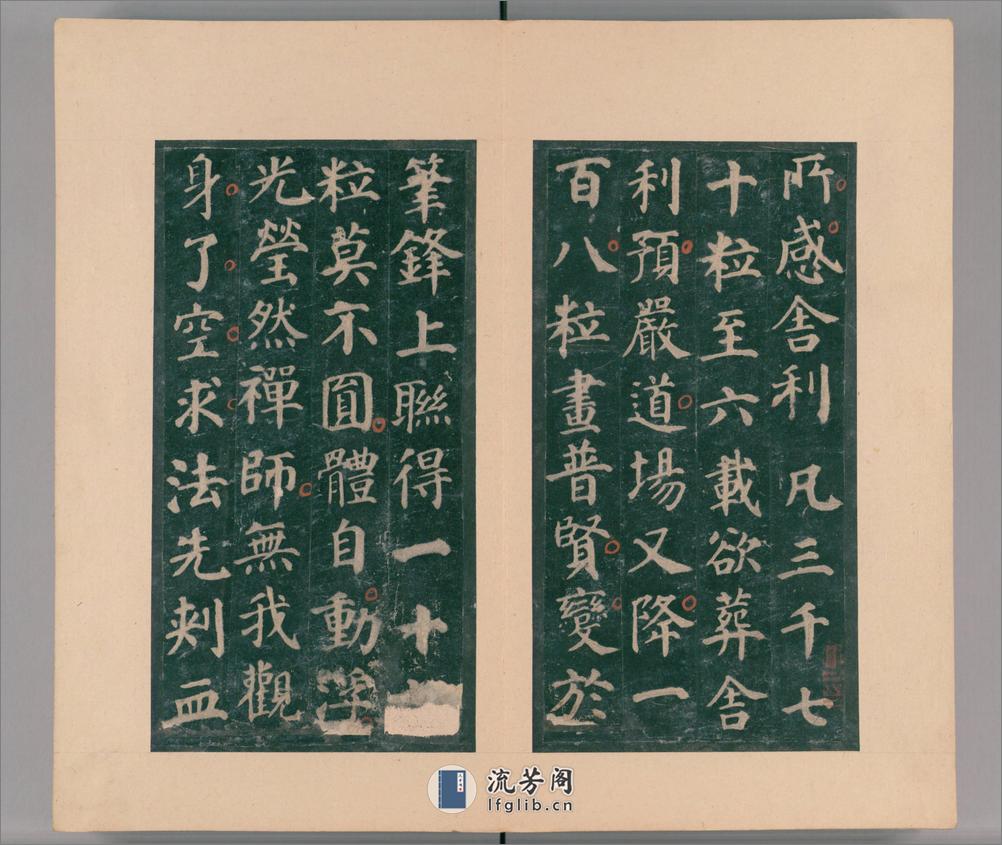 所感舍利凡三千七
十粒至六載欲葬舍
利預嚴道場又降一
百八粒畫普賢變於
筆鋒上聯得一十
粒莫不圓體自動浮
光瑩然禪師無我觀
身了空求法先刺血
流芳阁
lfglib.cn